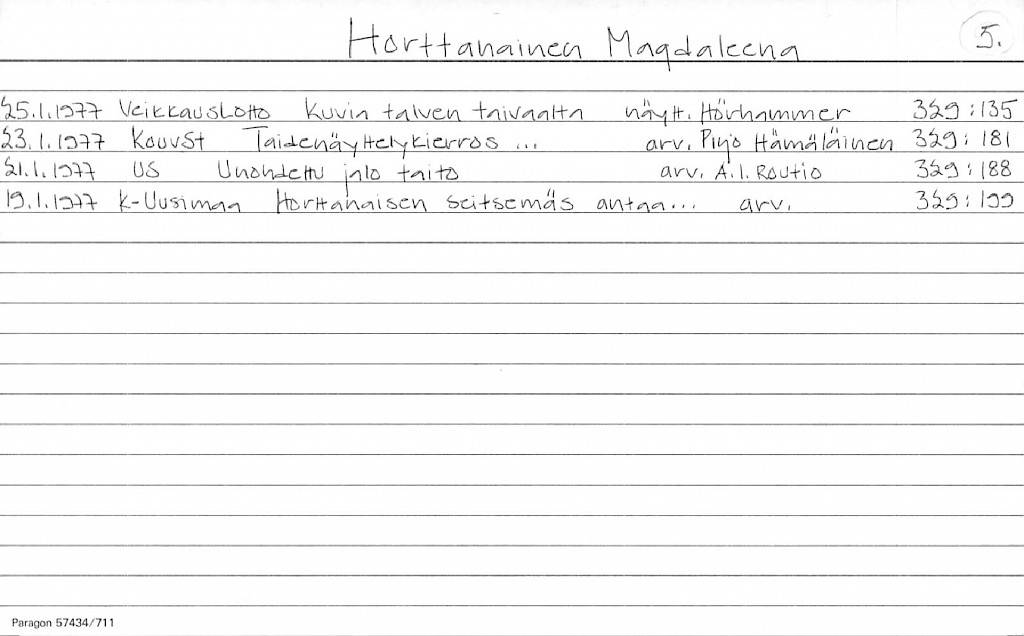 Horttanainen Magdaleena 5.
25.1.1977 Veikkauslotto Kuvia talven taivaalta näytt. Hörhammer 329:135
23.1.1977 KouvSt Taidenäyttelykierros ... arv. Pirjo Hämäläinen 329:181
21.1.1977 US Unohdettu jalo taito arv. A.I. Routio 329:188
19.1.1977 K-Uusimaa Horttanaisen seitsemäs antaa... arv. 329:199
Paragon 57434/711